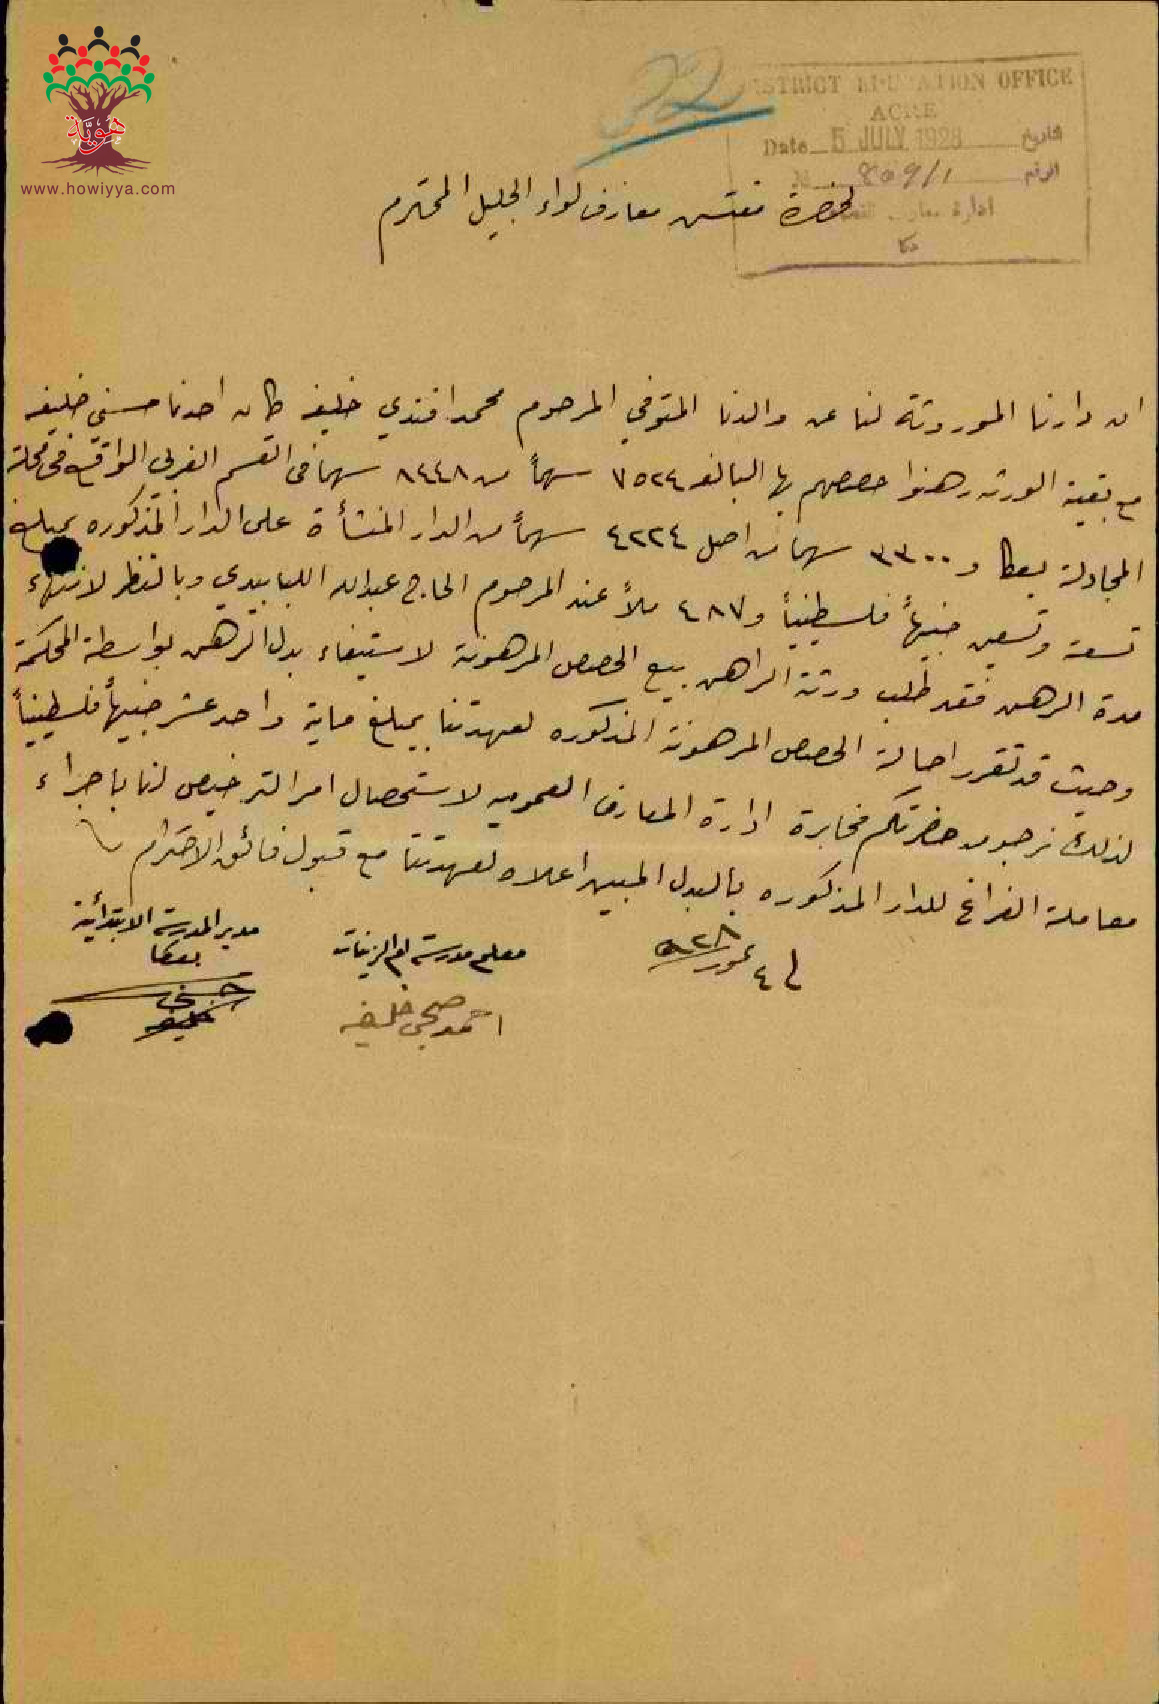 هوية
www.howiyya.com
22
DISTRICT EDUCATION OFFICE
ACRE
Date 5 JULY 1928 تاريخ
No 809/1 الرقم
ادارة معارف
عكا
لحضرة مفتش معارف لواء الجليل المحترم
ان دارنا الموروثة لنا عن والدنا المتوفي المرحوم محمد افندي خليفه كان احدنا حسني خليفه
مع بقية الورثه رهنوا حصصهم بها البالغه ٧٥٢٤ سهماً من ٨٤٤٨ سهما في القسم الغربي الواقع في محلة
المجادلة بعكا و ٣٣٠٠ سهما من اصل ٤٢٢٤ سهماً من الدار المنشأة على الدار المذكوره بمبلغ
تسعة وتسعين جنيهاً فلسطينياً و٤٨٧ ملاً عند المرحوم الحاج عبدالله اللبابيدي وبالنظر لانتهاء
مدة الرهن فقد طلب ورثة الراهن بيع الحصص المرهونة لاستيفاء بدل الرهن بواسطة المحكمة
وحيث قد تقرر احالة الحصص المرهونة المذكوره لعهدتنا بمبلغ ماية واحد عشر جنيهاً فلسطينياً
لذلك نرجو من حضرتكم مخابرة ادارة المعارف العموميه لاستحصال امر الترخيص لنا باجراء
معاملة الفراغ للدار المذكوره بالبدل المبين اعلاه لعهدتنا مع قبول فائق الاحترام
٤ تموز ٩٢٨
معلم مدرسة ام الزينات
احمد صبحي خليفه
مدير المدرسة الابتدائية
بعكا
حسني
خليفه